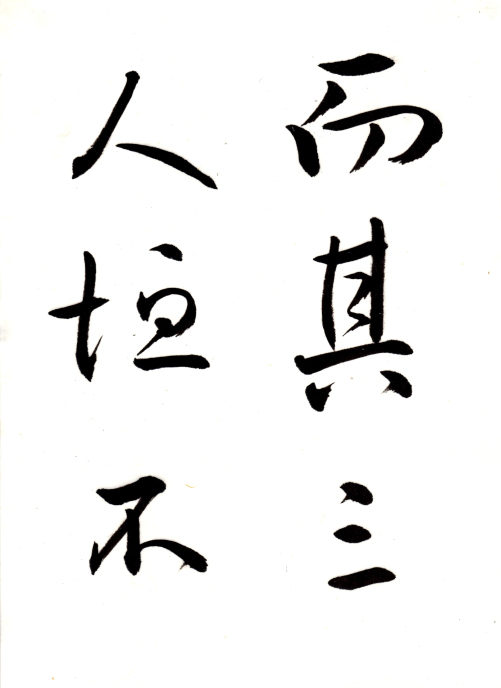 而其三
人恒不